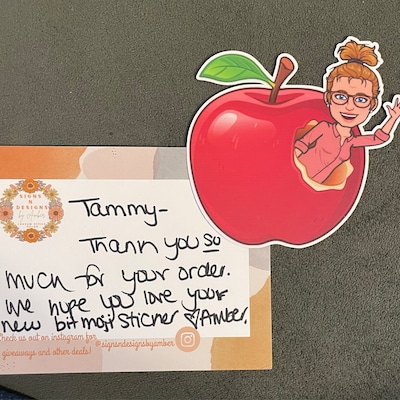 SIGNS
N
DESIGNS
by Amber
Tammy-
Thank you so
much for your order.
We hope you love your
new bitmoji sticker ♡Amber.
check us out on instagram for
giveaways and other deals!
@signsndesignsbyamber